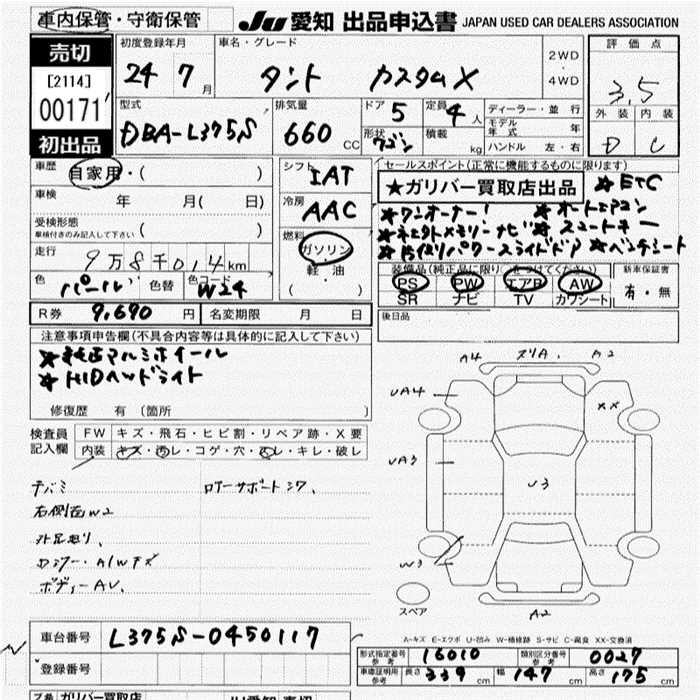 車内保管・守衛保管
JU 愛知 出品申込書 JAPAN USED CAR DEALERS ASSOCIATION
売切
[2114]
00171
初出品
初度登録年月
24 7月
車名・グレード
タント カスタムX
2WD
4WD
評価点
3.5
外装 内装
D C
型式
DBA-L375S
排気量
660 CC
ドア 5
形状 ワゴン
定員 4人
積載 kg
ディーラー・並行
モデル年式 年
ハンドル 左・右
車歴 自家用・( )
車検 年 月( 日)
受検形態
車検付きのみ記入して下さい ( )
走行 9万8千014km
色 パール 色替 色コード W24
シフト IAT
冷房 AAC
燃料 ガソリン
軽油
( )
セールスポイント(正常に機能するものに限ります)
★ガリバー買取店出品 ★ETC
★ワンオーナー! ★オートエアコン
★ネヒクトメモリーナビ ★スマートキー
★片側パワースライドドア ★ベンチシート
装備品(純正品に限り○をつけてください)
PS PW エアB AW
SR ナビ TV カワシート
新車保証書
有・無
R券 9,690円 名変期限 月 日
後日品
注意事項申告欄(不具合内容等は具体的に記入して下さい)
★純正アルミホイール
★HIDヘッドライト
修復歴 有 (箇所 )
検査員記入欄
FW キズ・飛石・ヒビ割・リペア跡・X要
内装 キズ・汚レ・コゲ・穴・スレ・キレ・破レ
A4 スリA. A2
UA4
XX
UA3
U3
W3
A2
スペア
右側面W2
A/Wキズ
ボディーAU.
A-キズ E-エクボ U-凹み W-補修跡 S-サビ C-腐食 XX-交換済
車台番号 L375S-0450117
登録番号
形式指定番号 参考 16010 類別区分番号 参考 0027
車庫証明用 参考 長さ 339cm 幅 147cm 高さ 175cm
ガリバー買取店
JU愛知 売切